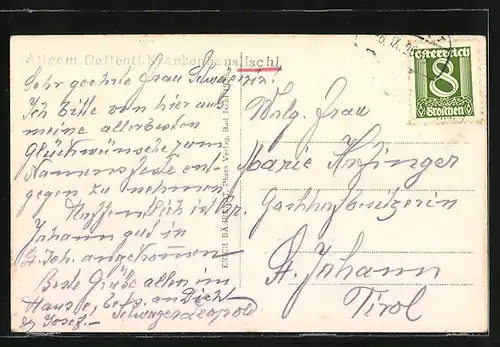 Allgem. Oeffentl. Krankenhaus Ischl
Sehr geehrte Frau Schwägerin!
Ich bitte von hier aus
meine allerbesten
Glückwünsche zum
Namensfeste ent-
gegen zu nehmen.
Hoffentlich ist Hr.
Johann gut in
St. Joh. angekommen
Beste Grüße allen im
Hause, bes. an Dich
Josef.
Schwager Leopold
Wolg. Frau
Marie
Gasthofbesitzerin
St. Johann
Tirol
Photo Verlag, Bad Ischl
Österreich
8
Groschen
IX